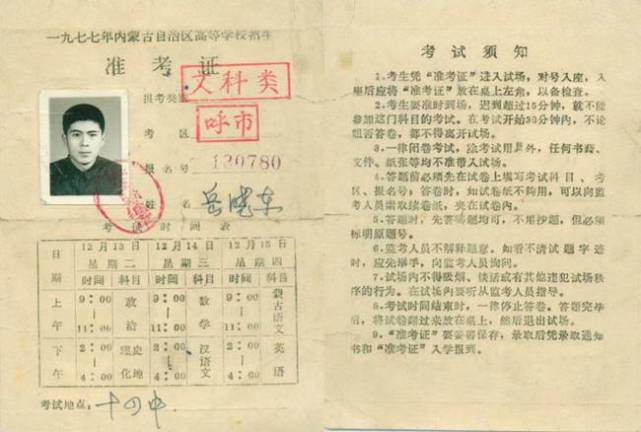 一九七七年内蒙古自治区高等学校招生
准考证
报考类 文科类
考区 呼市
报名号 130780
姓名 岳晓东
考试时间表
日期 12月13日 星期二 12月14日 星期三 12月15日 星期四
时间 科目 时间 科目 时间 科目
上午 9:00—11:00 政治 9:00—11:00 数学 9:00—11:00 蒙古语文
下午 2:00—4:00 理化 史地 2:00—4:00 汉语文 2:00—4:00 英语
考试地点：十四中
考试须知
1.考生凭“准考证”进入试场，对号入座，入
座后应将“准考证”放在桌上左角，以备检查。
2.考生要准时到场，迟到超过15分钟，就不能
参加这门科目的考试。在考试开始30分钟内，不论
能否答卷，都不得离开试场。
3.一律闭卷考试，除考试用具外，任何书籍、
文件、纸张等均不准带入试场。
4.答题前必须先在试卷上填写考试科目、考
区、报名号；答卷时，如试卷纸不够用，可以向监
考人员索取续卷纸，夹在试卷内。
5.答题时，先答哪题均可，不用抄题，但必须
标明原题号。
6.监考人员不解释题意。如看不清试题字迹
时，应先举手，向监考人员询问。
7.试场内不得吸烟、谈话或有其他违犯试场秩
序的行为。在试场内要听从监考人员指导。
8.考试时间结束时，一律停止答卷。答题完毕
后，将试卷翻过来放在桌上，然后退出试场。
9.“准考证”要妥善保存，录取后凭录取通知
书和“准考证”入学报到。